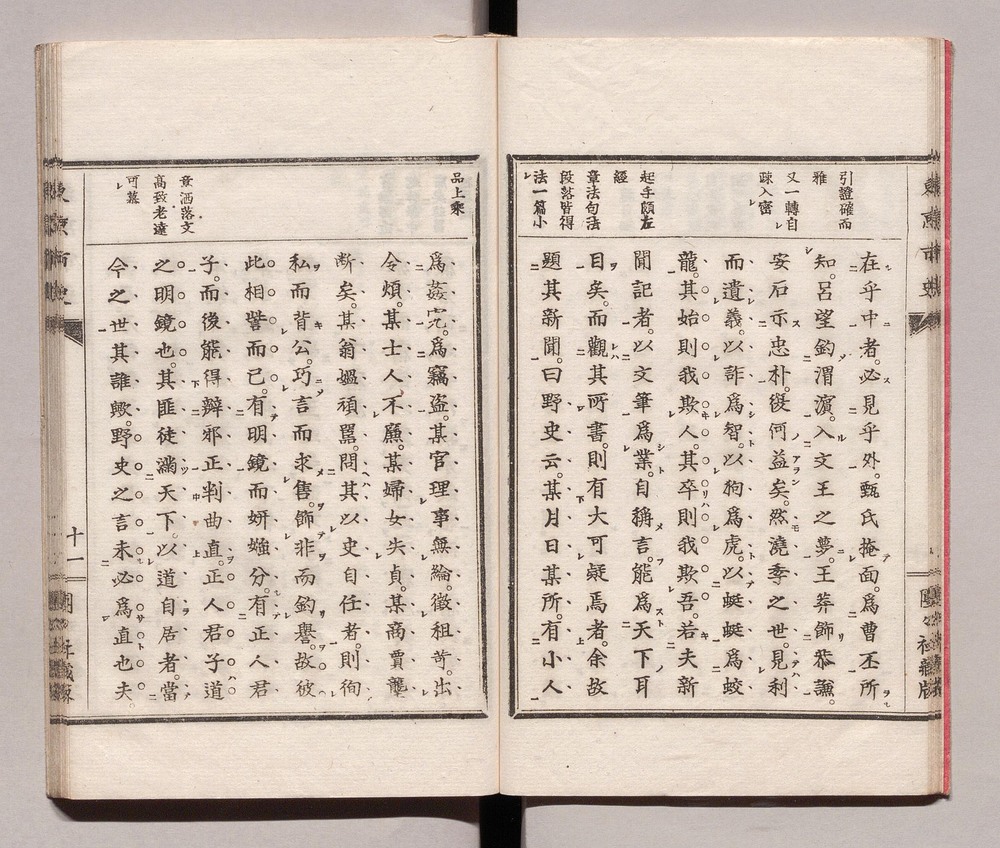 引證確而
雅
又一轉自
疎入密
起手頗左
經
章法句法
段落皆得
法一篇小
在乎中者。必見乎外。甄氏掩面。爲曹丕所
知。呂望釣渭濱。入文王之夢。王莽飾恭謙。
安石示忠朴。後何益矣。然澆季之世。見利
而遺義。以詐爲智。以狗爲虎。以蜓蜓爲蛟
龍。其始則我欺人。其卒則我欺吾。若夫新
聞記者。以文筆爲業。自稱言。能爲天下耳
目矣。而觀其所書。則有大可疑焉者。余故
題其新聞。曰野史云。某月日某所。有小人
品上乘
洒落文
高致老遠
可慕
爲姦宄。爲竊盜。某官理事無綸。徵租苛。出
令煩。某士人不愿。某婦女失貞。某商賈龔
斷矣。某翁媼頑嚚。問其以史自任者。則徇
私而背公。巧言而求售。飾非而釣譽。故彼
此相訾而已。有明鏡而妍媸分。有正人君
子。而後能得辯邪正判曲直。正人君子道
之明鏡也。其匪徒滿天下。以道自居者。當
今之世其誰歟。野史之言未必爲直也夫。
十一